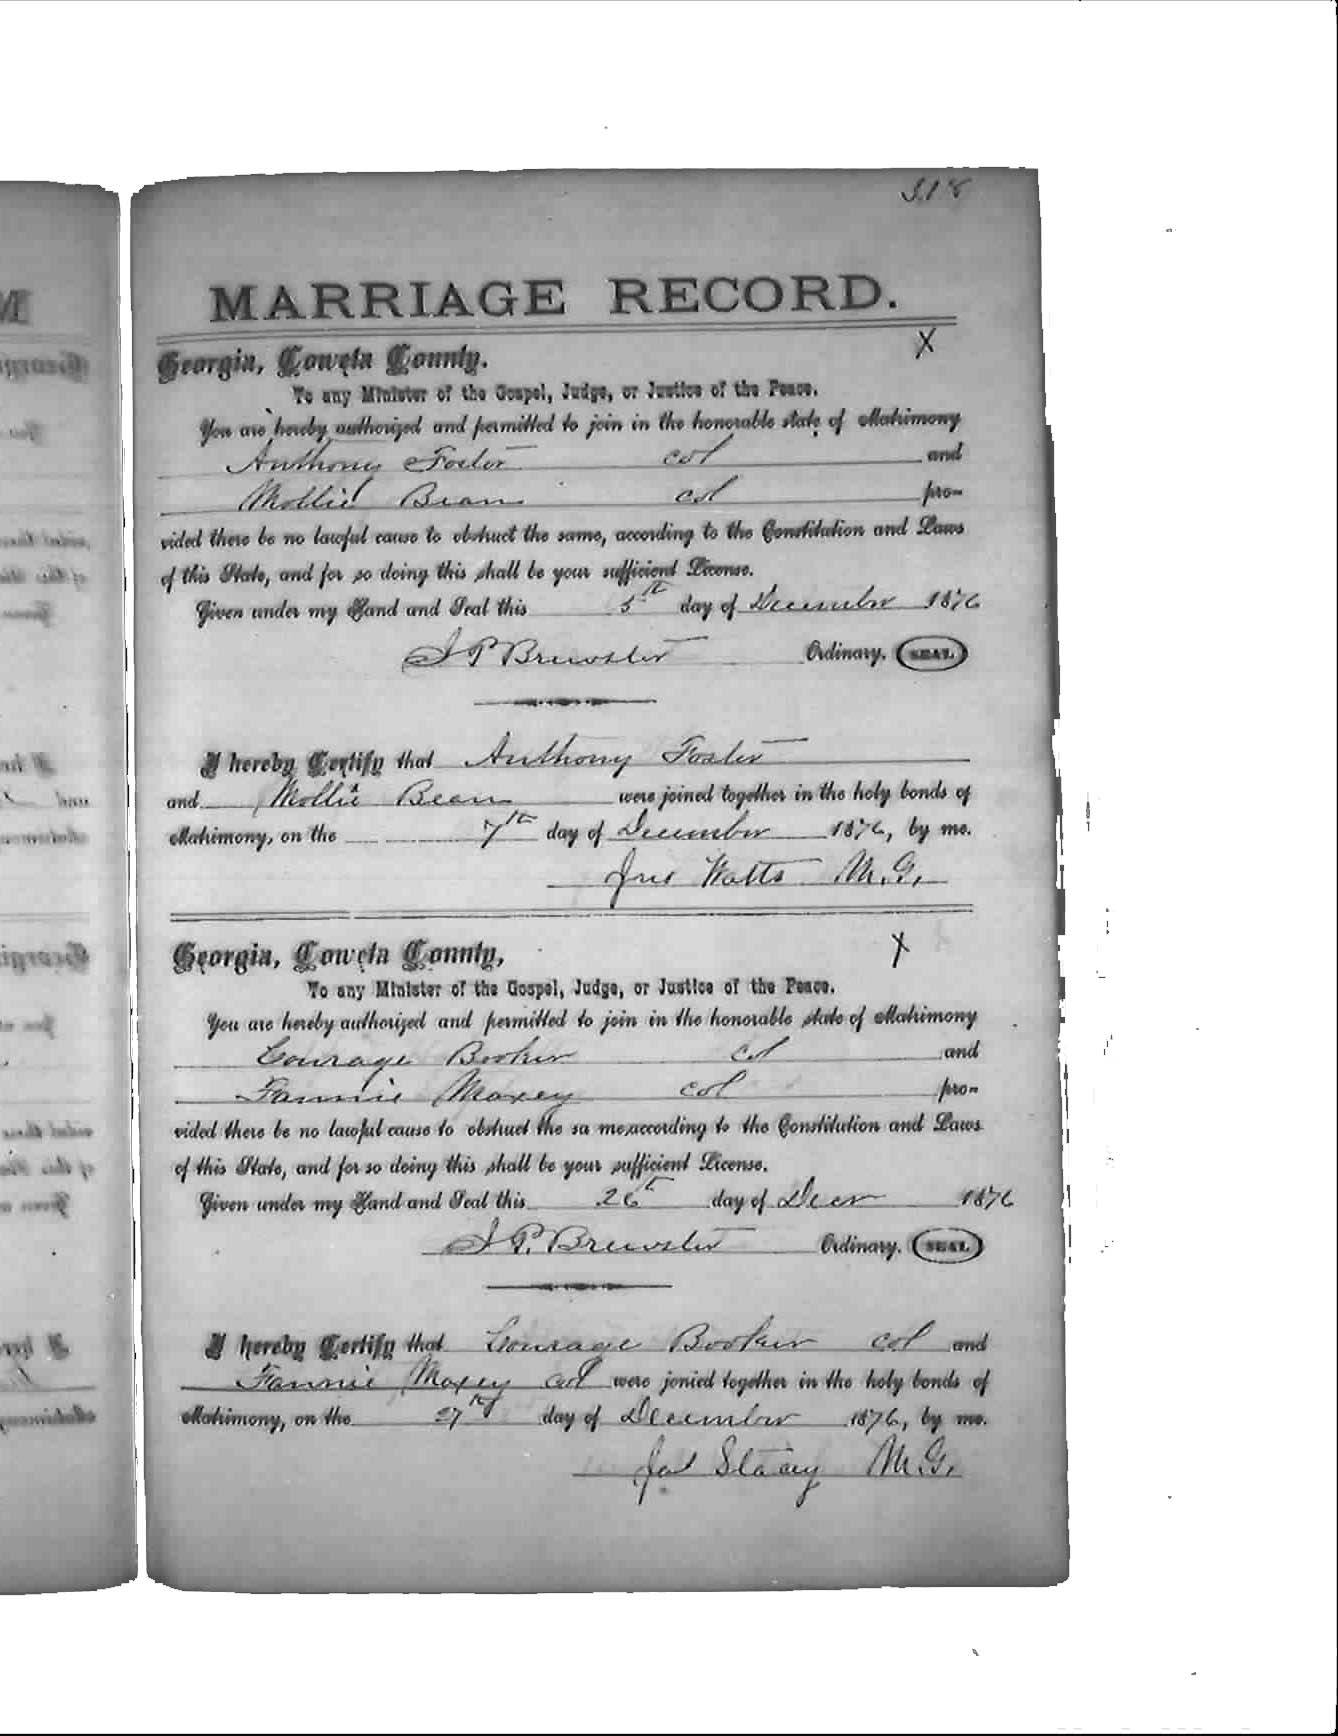 318
MARRIAGE RECORD.
X
Georgia, Coweta County.
To any Minister of the Gospel, Judge, or Justice of the Peace.
You are hereby authorized and permitted to join in the honorable state of Matrimony
Anthony Foster col and
Mollie Bean col pro-
vided there be no lawful cause to obstruct the same, according to the Constitution and Laws
of this State, and for so doing this shall be your sufficient License.
Given under my Hand and Seal this 5th day of December 1876
J P Brewster Ordinary. SEAL
I hereby Certify that Anthony Foster
and Mollie Bean were joined together in the holy bonds of
Matrimony, on the 7th day of December 1876, by me.
Jno Watts M.G.
X
Georgia, Coweta County,
To any Minister of the Gospel, Judge, or Justice of the Peace.
You are hereby authorized and permitted to join in the honorable state of Matrimony
Courage Booker col and
Fannie Maxey col pro-
vided there be no lawful cause to obstruct the sa me,according to the Constitution and Laws
of this State, and for so doing this shall be your sufficient License.
Given under my Hand and Seal this 26th day of Decr 1876
J P. Brewster Ordinary. SEAL
I hereby Certify that Courage Booker col and
Fannie Maxey col were jonied together in the holy bonds of
Matrimony, on the 27th day of December 1876, by me.
Jas Stacy M.G.